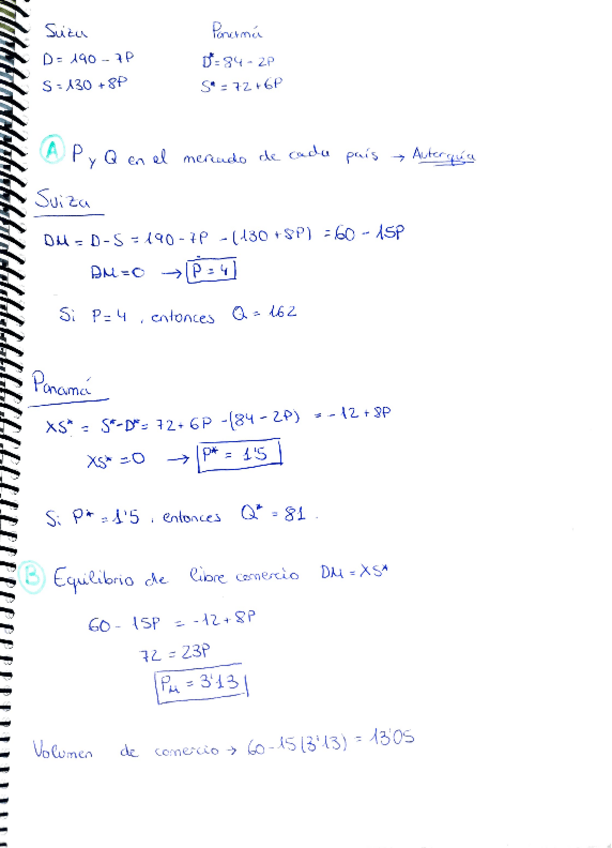 Suiza Panamá
D = 190 - 7P D* = 84 - 2P
S = 130 + 8P S* = 72 + 6P
A P y Q en el mercado de cada país → Autarquía
Suiza
DM = D - S = 190 - 7P - (130 + 8P) = 60 - 15P
DM = 0 → P = 4
Si P = 4, entonces Q = 162
Panamá
XS* = S* - D* = 72 + 6P - (84 - 2P) = -12 + 8P
XS* = 0 → P* = 1'5
Si P* = 1'5, entonces Q* = 81.
B Equilibrio de libre comercio DM = XS*
60 - 15P = -12 + 8P
72 = 23P
PM = 3'13
Volumen de comercio → 60 - 15(3'13) = 13'05